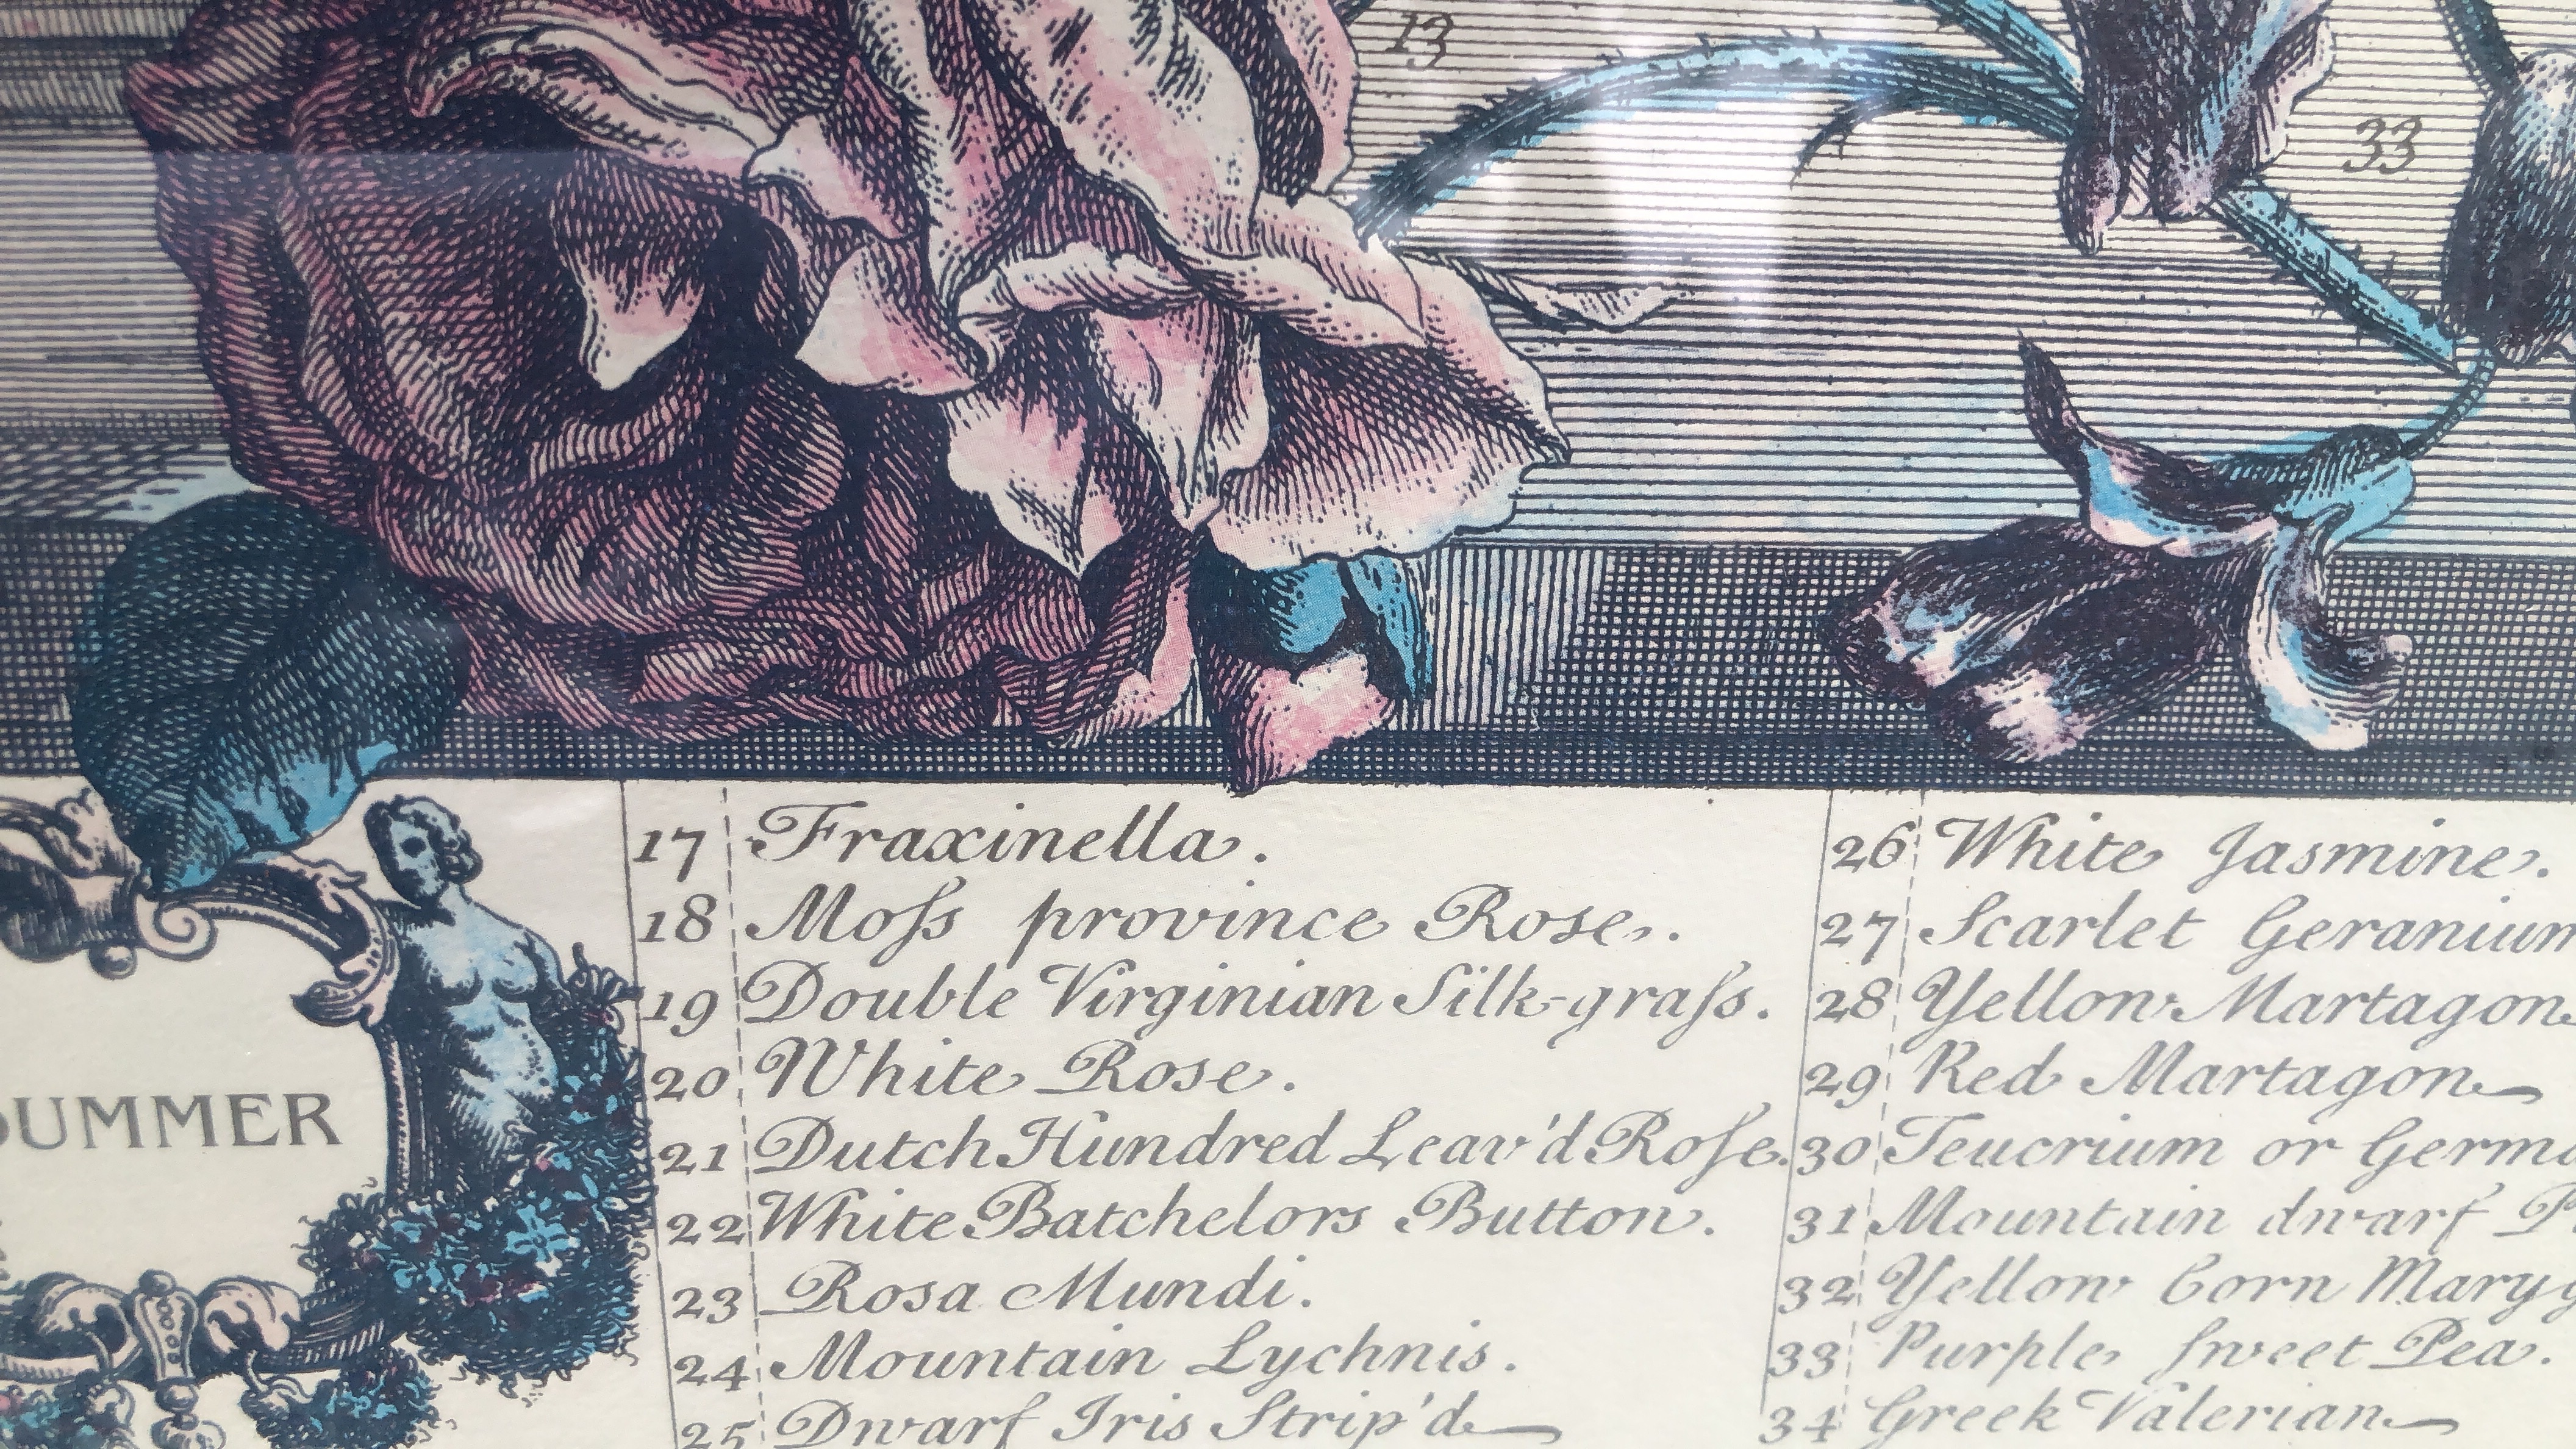 13
33
SUMMER
17 Fraxinella.
18 Moſs province Rose.
19 Double Virginian Silk-graſs.
20 White Rose.
21 Dutch Hundred Leav'd Roſe.
22 White Batchelors Button.
23 Rosa Mundi.
24 Mountain Lychnis.
25 Dwarf Iris Strip'd
26 White Jasmine.
27 Scarlet Geranium
28 Yellow Martagon
29 Red Martagon
30 Teucrium or Germa
31 Mountain dwarf P
32 Yellow Corn Maryg
33 Purple sweet Pea.
34 Greek Valerian